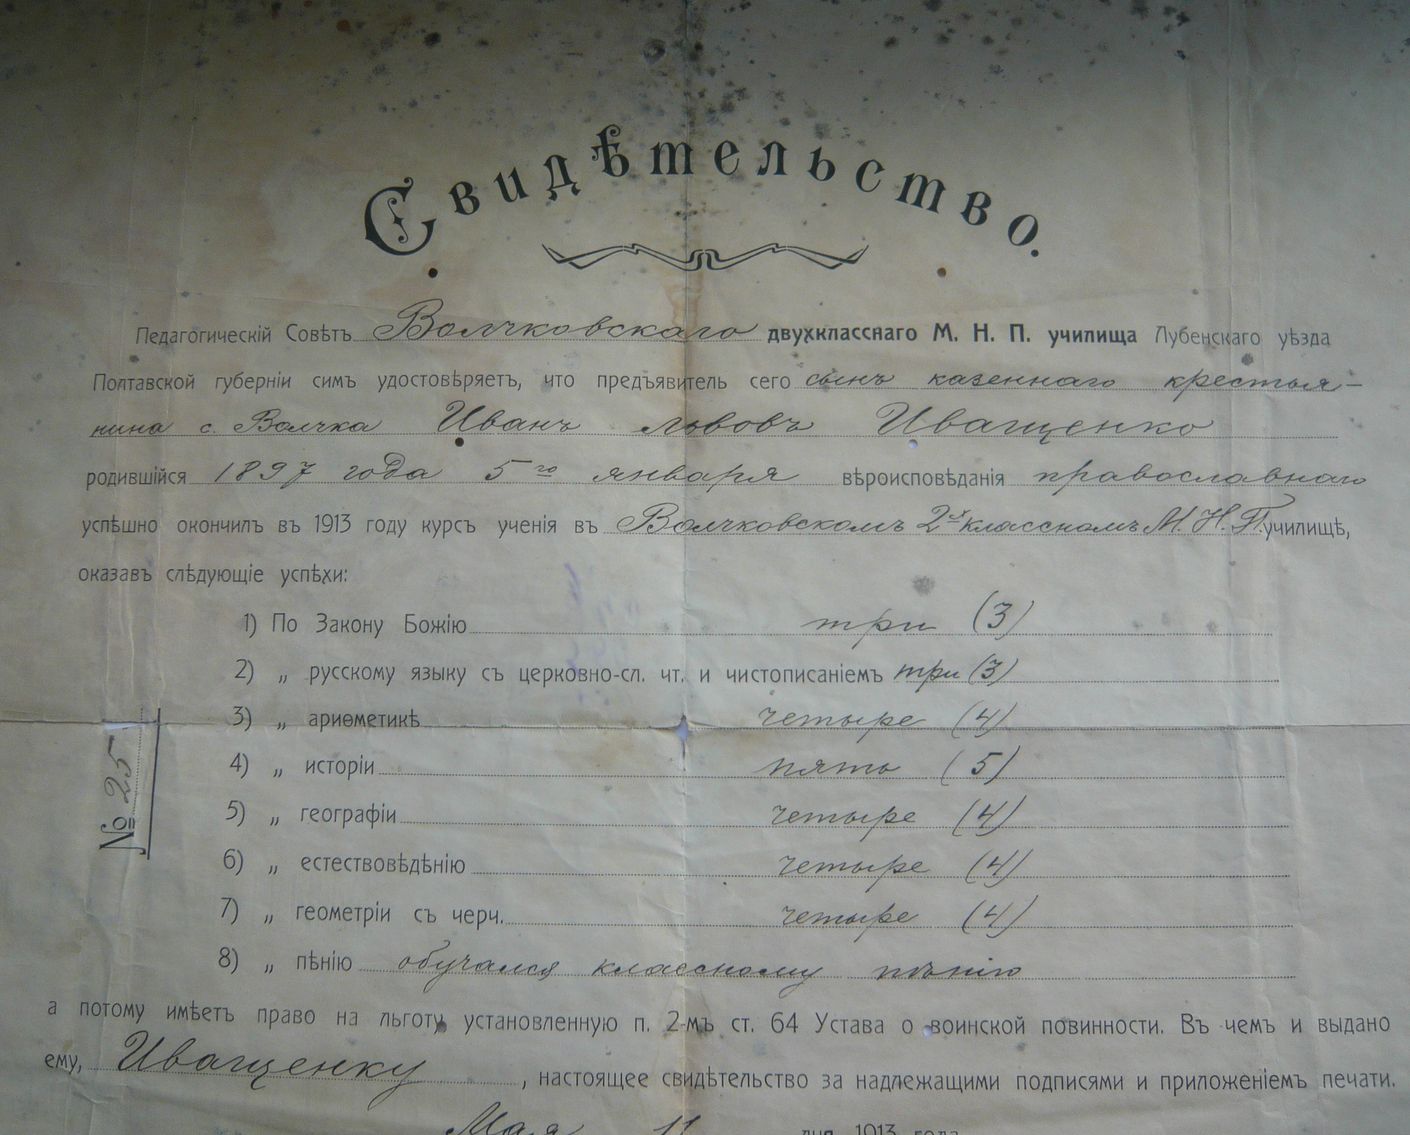 Свидѣтельство.
Педагогическій Совѣтъ Волчковскаго двухкласснаго М. Н. П. училища Лубенскаго уѣзда
Полтавской губерніи симъ удостовѣряетъ, что предъявитель сего сынъ казеннаго крестья-
нина с. Волчка Иванъ Львовъ Иващенко
родившійся 1897 года 5го января вѣроисповѣданія православнаго
успѣшно окончилъ въ 1913 году курсъ ученія въ Волчковскомъ 2х классномъ М. Н. П. училищѣ,
оказавъ слѣдующіе успѣхи:
1) По Закону Божію три (3)
2) „ русскому языку съ церковно-сл. чт. и чистописаніемъ три (3)
3) „ ариѳметикѣ четыре (4)
4) „ исторіи пять (5)
5) „ географіи четыре (4)
6) „ естествовѣдѣнію четыре (4)
7) „ геометріи съ черч. четыре (4)
8) „ пѣнію обучался классному пѣнію
№ 25
а потому имѣетъ право на льготу, установленную п. 2-мъ ст. 64 Устава о воинской повинности. Въ чемъ и выдано
ему, Иващенку, настоящее свидѣтельство за надлежащими подписями и приложеніемъ печати.
Мая 11 дня 1913 года